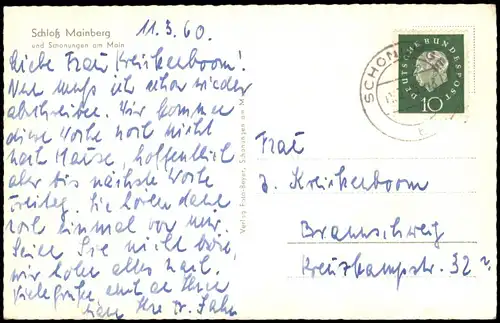 Schloß Mainberg
und Schonungen am Main
11.3.60.
Liebe Frau Kreikenboom!
Nun muß ich schon wieder
abschreiben. Wir kommen
diese Woche noch nicht
nach Hause, hoffentlich
aber bis nächste Woche
Freitag. Sie hören dann
noch einmal von mir.
Seien Sie nicht böse,
wir holen alles nach.
Viele Grüße an alle Ihre
Ihre Dr.
Verlag Foto-Beyer, Schonungen am M
DEUTSCHE BUNDESPOST
10
SCHONUNGEN
Frau
J. Kreikenboom
Braunschweig
Kreuzkampstr. 32